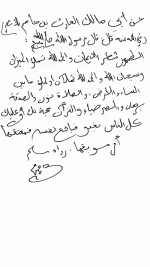 عن أبي مالك الحارث بن عاصم الأشعري
رضي الله عنه قال قال رسول الله ﷺ
الطهور شطر الإيمان والحمد لله تملأ الميزان
وسبحان الله والحمد لله تملآن أو تملأ ما بين
السماء والأرض والصلاة نور والصدقة
برهان والصبر ضياء والقرآن حجة لك أو عليك
كل الناس يغدو فبائع نفسه فمعتقها
أو موبقها رواه مسلم